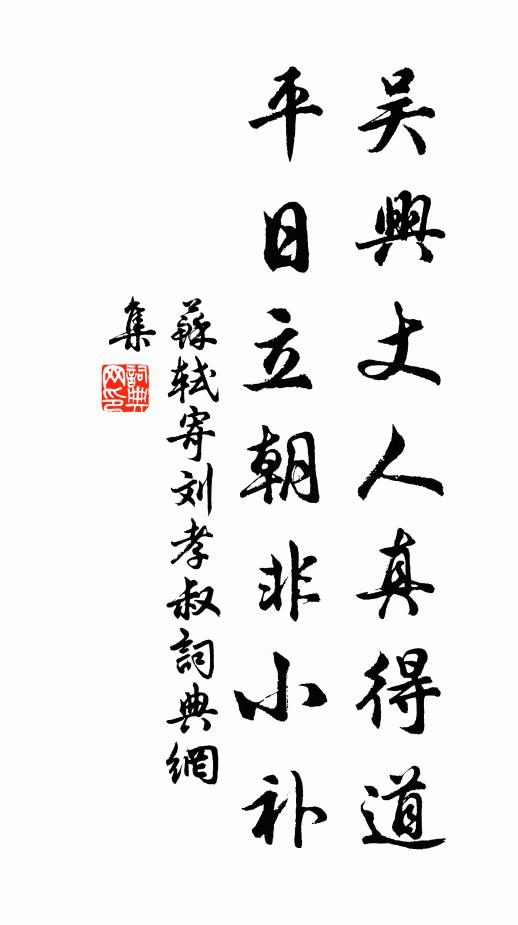 吴興丈人真得道
平日立朝非小补
蘇軾寄刘孝叔詞典網
集
詞典网印